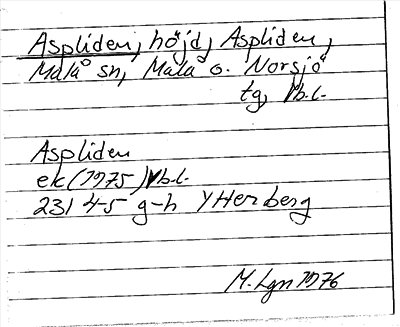 Aspliden, höjd, Aspliden,
Malå sn, Malå o. Norsjö
tg, Vb.l.
Aspliden
ek (1975) Vb.l.
231 4-5 g-h YHerberg
M. Lgn 1976